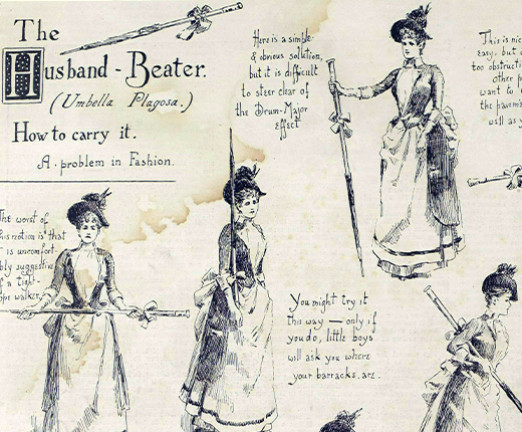 The
Husband-Beater.
(Umbella Plagosa.)
How to carry it.
A problem in Fashion.
Here is a simple
& obvious solution,
but it is difficult
to steer clear of
the Drum-Major
Effect
This is nic
easy. but
too obstructi
other
want to
the pavem
well as y
The worst of
this notion is that
it is uncomfort-
bly suggestive
of a tight-
ope walker.
You might try it
this way — only if
you do, little boys
will ask you where
your barracks are.